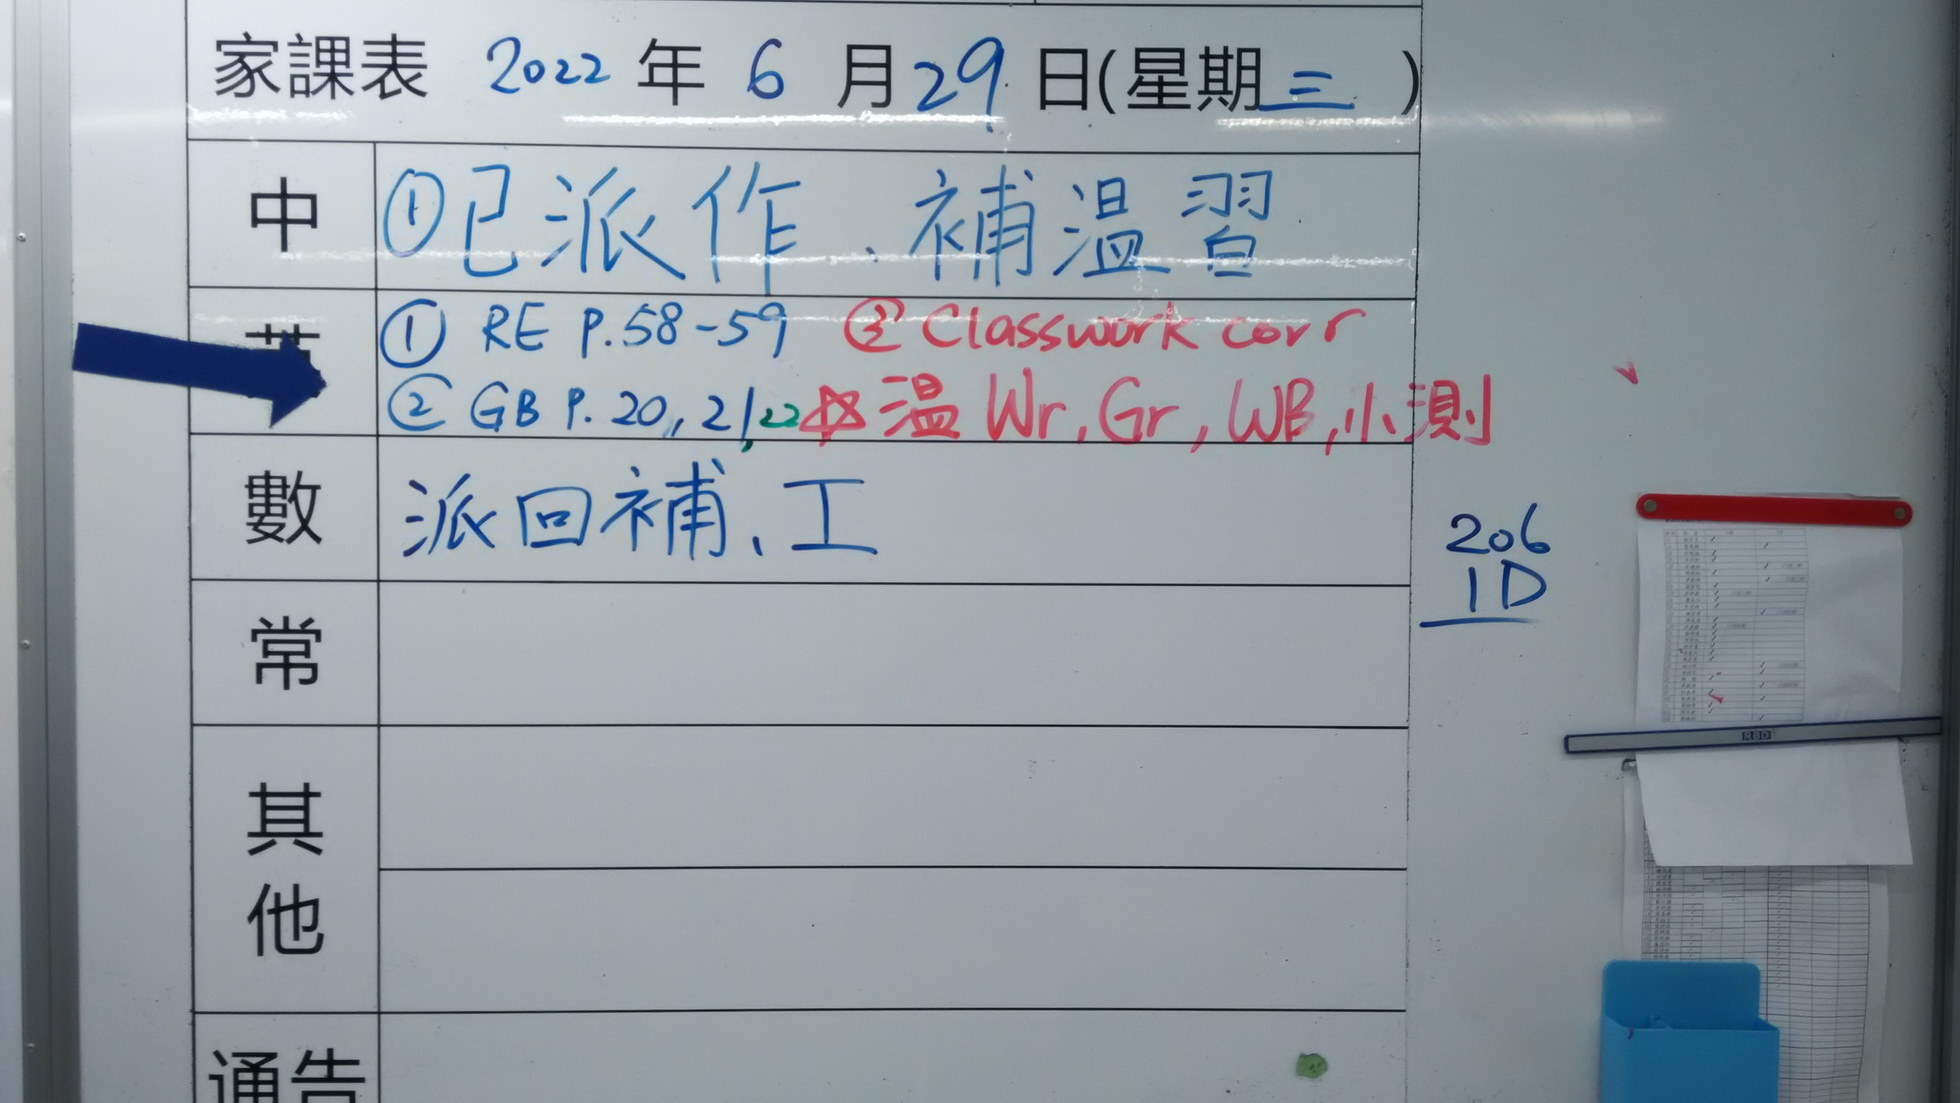 家課表 2022 年 6 月 29 日(星期三)
中 ①已派作、補温習
① RE P.58-59 ③ Classwork corr
② GB P. 20, 21, 22 ☆温 Wr, Gr, WB, 小測
數 派回補、工
206
1D
常
其他
通告